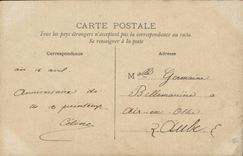 CARTE POSTALE
Tous les pays étrangers n'acceptent pas la correspondance au recto.
Se renseigner à la poste
Correspondance
Adresse
Mlle Germaine
Bellemanière à
Aix-en-Othe
Aube
au 16 avril
Anniversaire de
16 printemps
Céline